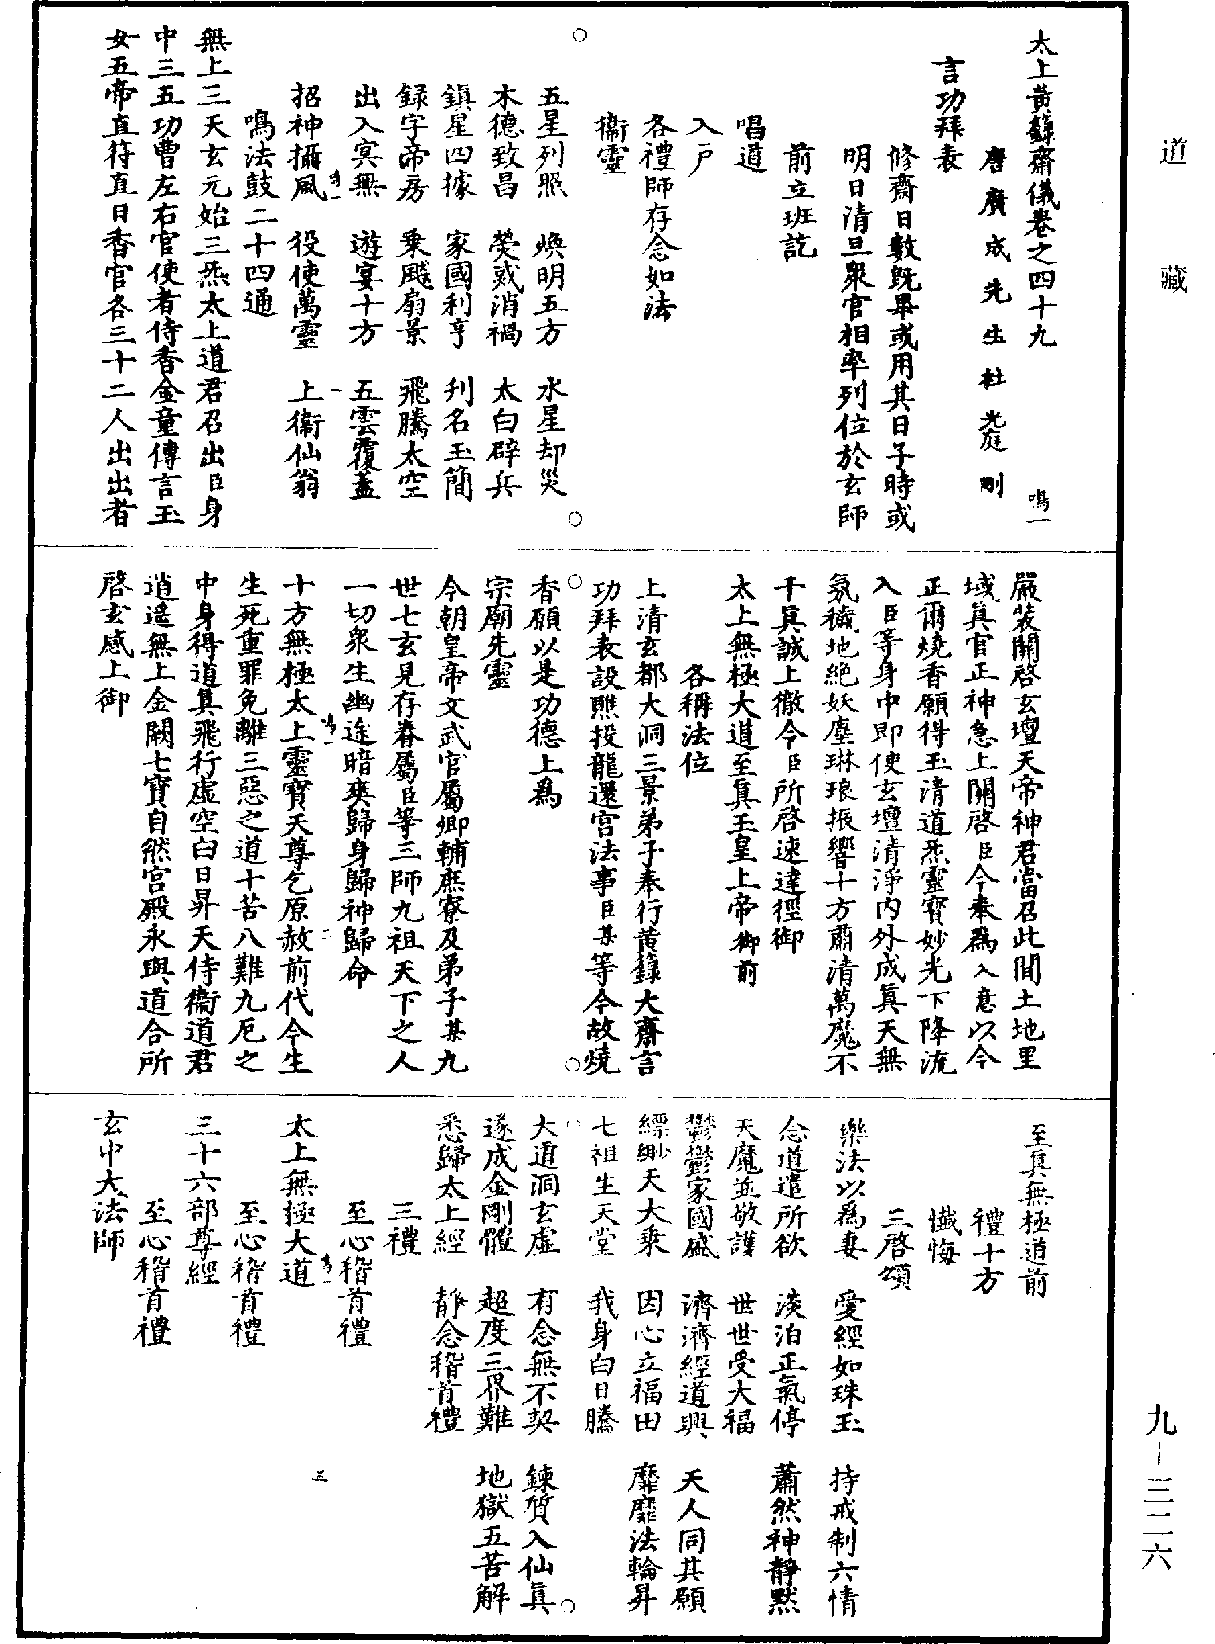 道藏
太上黃籙齋儀卷之四十九 鳴一
唐廣成先生杜光庭刪
言功拜表
修齋日數既畢或用其日子時或
明日清旦眾官相率列位於玄師
前立班訖
唱道
入戶
各禮師存念如法
衛靈
五星列照 煥明五方 水星却災
木德致昌 熒惑消禍 太白辟兵
鎮星四據 家國利亨 刋名玉簡
録字帝房 乗飈扇景 飛騰太空
出入㝠無 遊宴十方 五雲覆蓋
招神攝風 役使萬靈 上衛仙翁
鳴法鼓二十四通
無上三天玄元始三炁太上道君召出臣身
中三五功曹左右官使者侍香金童傳言玉
女五帝直符直日香官各三十二人出出者
嚴裝關啓玄壇天帝神君當召此間土地里
域真官正神急上關啓臣今奉為入意以今
正爾燒香願得玉清道炁靈寳妙光下降流
入臣等身中即使玄壇清淨内外成真天無
氛穢地絶妖塵琳琅振響十方肅清萬魔不
干真誠上徹今臣所啓速達徑御
太上無極大道至真玉皇上帝御前
各稱法位
上清玄都大洞三景弟子奉行黃籙大齋言
功拜表設醮投龍還宮法事臣某等今故燒
香願以是功德上為
宗廟先靈
今朝皇帝文武官屬卿輔庶寮及弟子某九
世七玄見存眷屬臣等三師九祖天下之人
一切眾生幽途暗爽歸身歸神歸命
十方無極太上靈寶天尊乞原赦前代今生
生死重罪免離三惡之道十苦八難九厄之
中身得道真飛行虛空白日昇天侍衛道君
逍遥無上金闕七寳自然宮殿永與道合所
啓玄感上御
至真無極道前
禮十方
懺悔
三啓頌
樂法以為妻 愛經如珠玉 持戒制六情
念道遣所欲 淡泊正氣停 蕭然神靜默
天魔並敬護 世世受大福
鬱鬱家國盛 濟濟經道興 天人同其願
縹緲天大乘 因心立福田 靡靡法輪昇
七祖生天堂 我身白日騰
大道洞玄虛 有念無不契 鍊質入仙真
遂成金剛體 超度三界難 地獄五苦解
悉歸太上經 靜念稽首禮
三禮
至心稽首禮
太上無極大道
至心稽首禮
三十六部尊經
至心稽首禮
玄中大法師
九-三二六